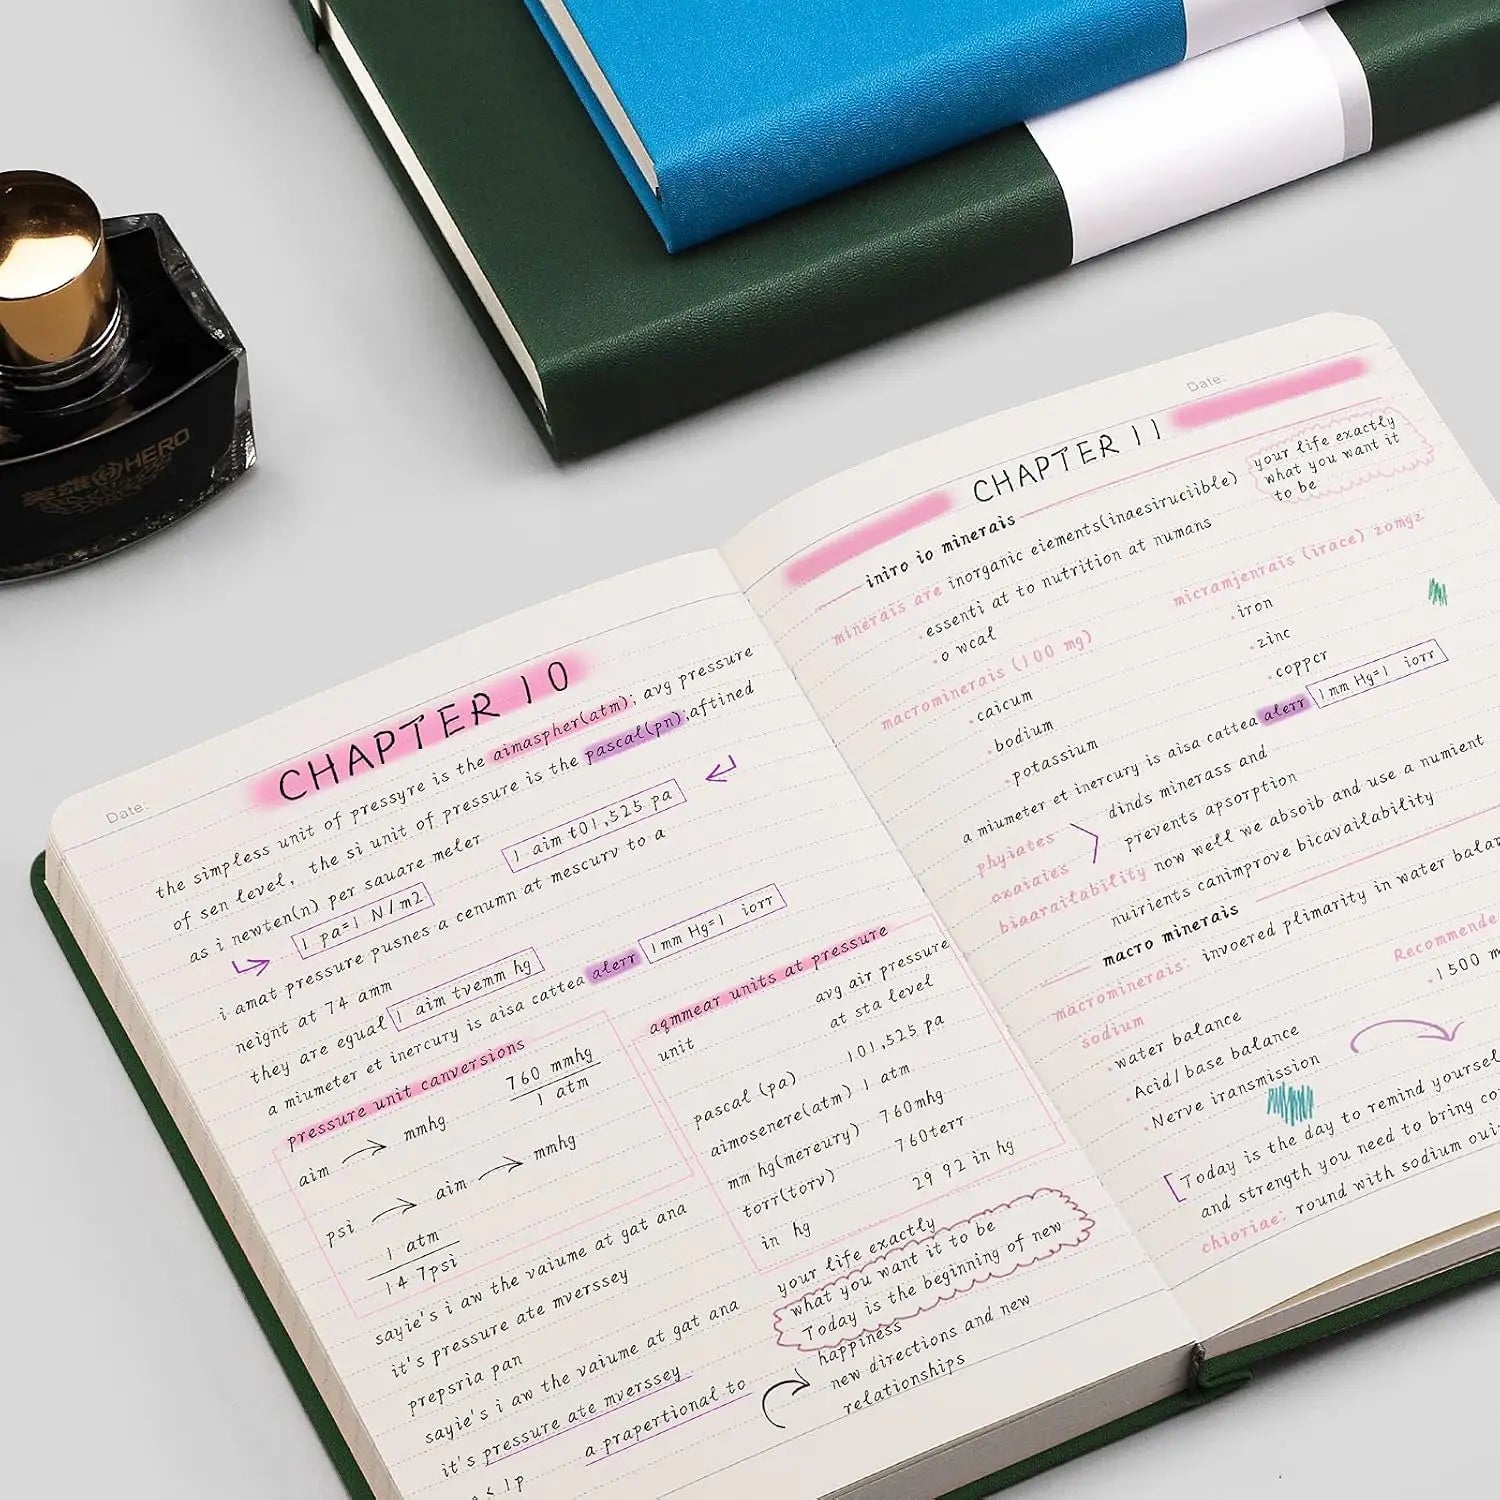 英雄 HERO
Date:
CHAPTER 10
the simpless unit of pressyre is the aimaspher(atm); avg pressure
of sen level, the si unit of pressure is the pascal(pn);aftined
as i newten(n) per sauare meler
1 aim t01,525 pa
1 pa=1 N/m2
i amat pressure pusnes a cenumn at mescurv to a
neignt at 74 amm
they are egual 1 aim tvemm hg
a miumeter et inercury is aisa cattea aterr 1mm Hg=1 iorr
pressure unit canversions
aim mmhg 760 mmhg
1 atm
psi aim mmhg
1 atm
14 7psi
aqmmear units at pressure
unit avg air pressure
at sta level
pascal (pa) 101,525 pa
aimosenere(atm) 1 atm
mm hg(mereury) 760mhg
torr(torv) 760terr
in hg 29 92 in hg
sayie's i aw the vaiume at gat ana
it's pressure ate mverssey
prepsria pan
sayie's i aw the vaiume at gat ana
it's pressure ate mverssey
a prapertional to
< 1p
your life exactly
what you want it to be
Today is the beginning of new
happiness
new directions and new
relationships
Date:
CHAPTER 11
iniro io minerais
your life exactly
what you want it
to be
minerais are inorganic eiements(inaesiruciible)
essenti at to nutrition at numans
o wcal
macrominerais (100 mg)
caicum
bodium
potassium
micramjenrais (irace) zomgz
iron
zinc
copper
a miumeter et inercury is aisa cattea aterr 1mm Hg=1 iorr
phyiates
oxaiaies
dinds minerass and
prevents apsorption
biaarailability now well we absoib and use a numient
nuirients canimprove bicavailability
macro minerais
macrominerais: invoered plimarity in water balan
sodium
Recommende
1500 m
water balance
Acid/base balance
Nerve iransmission
Today is the day to remind yoursel
and strength you need to bring co
chioriae: round with sodium oui